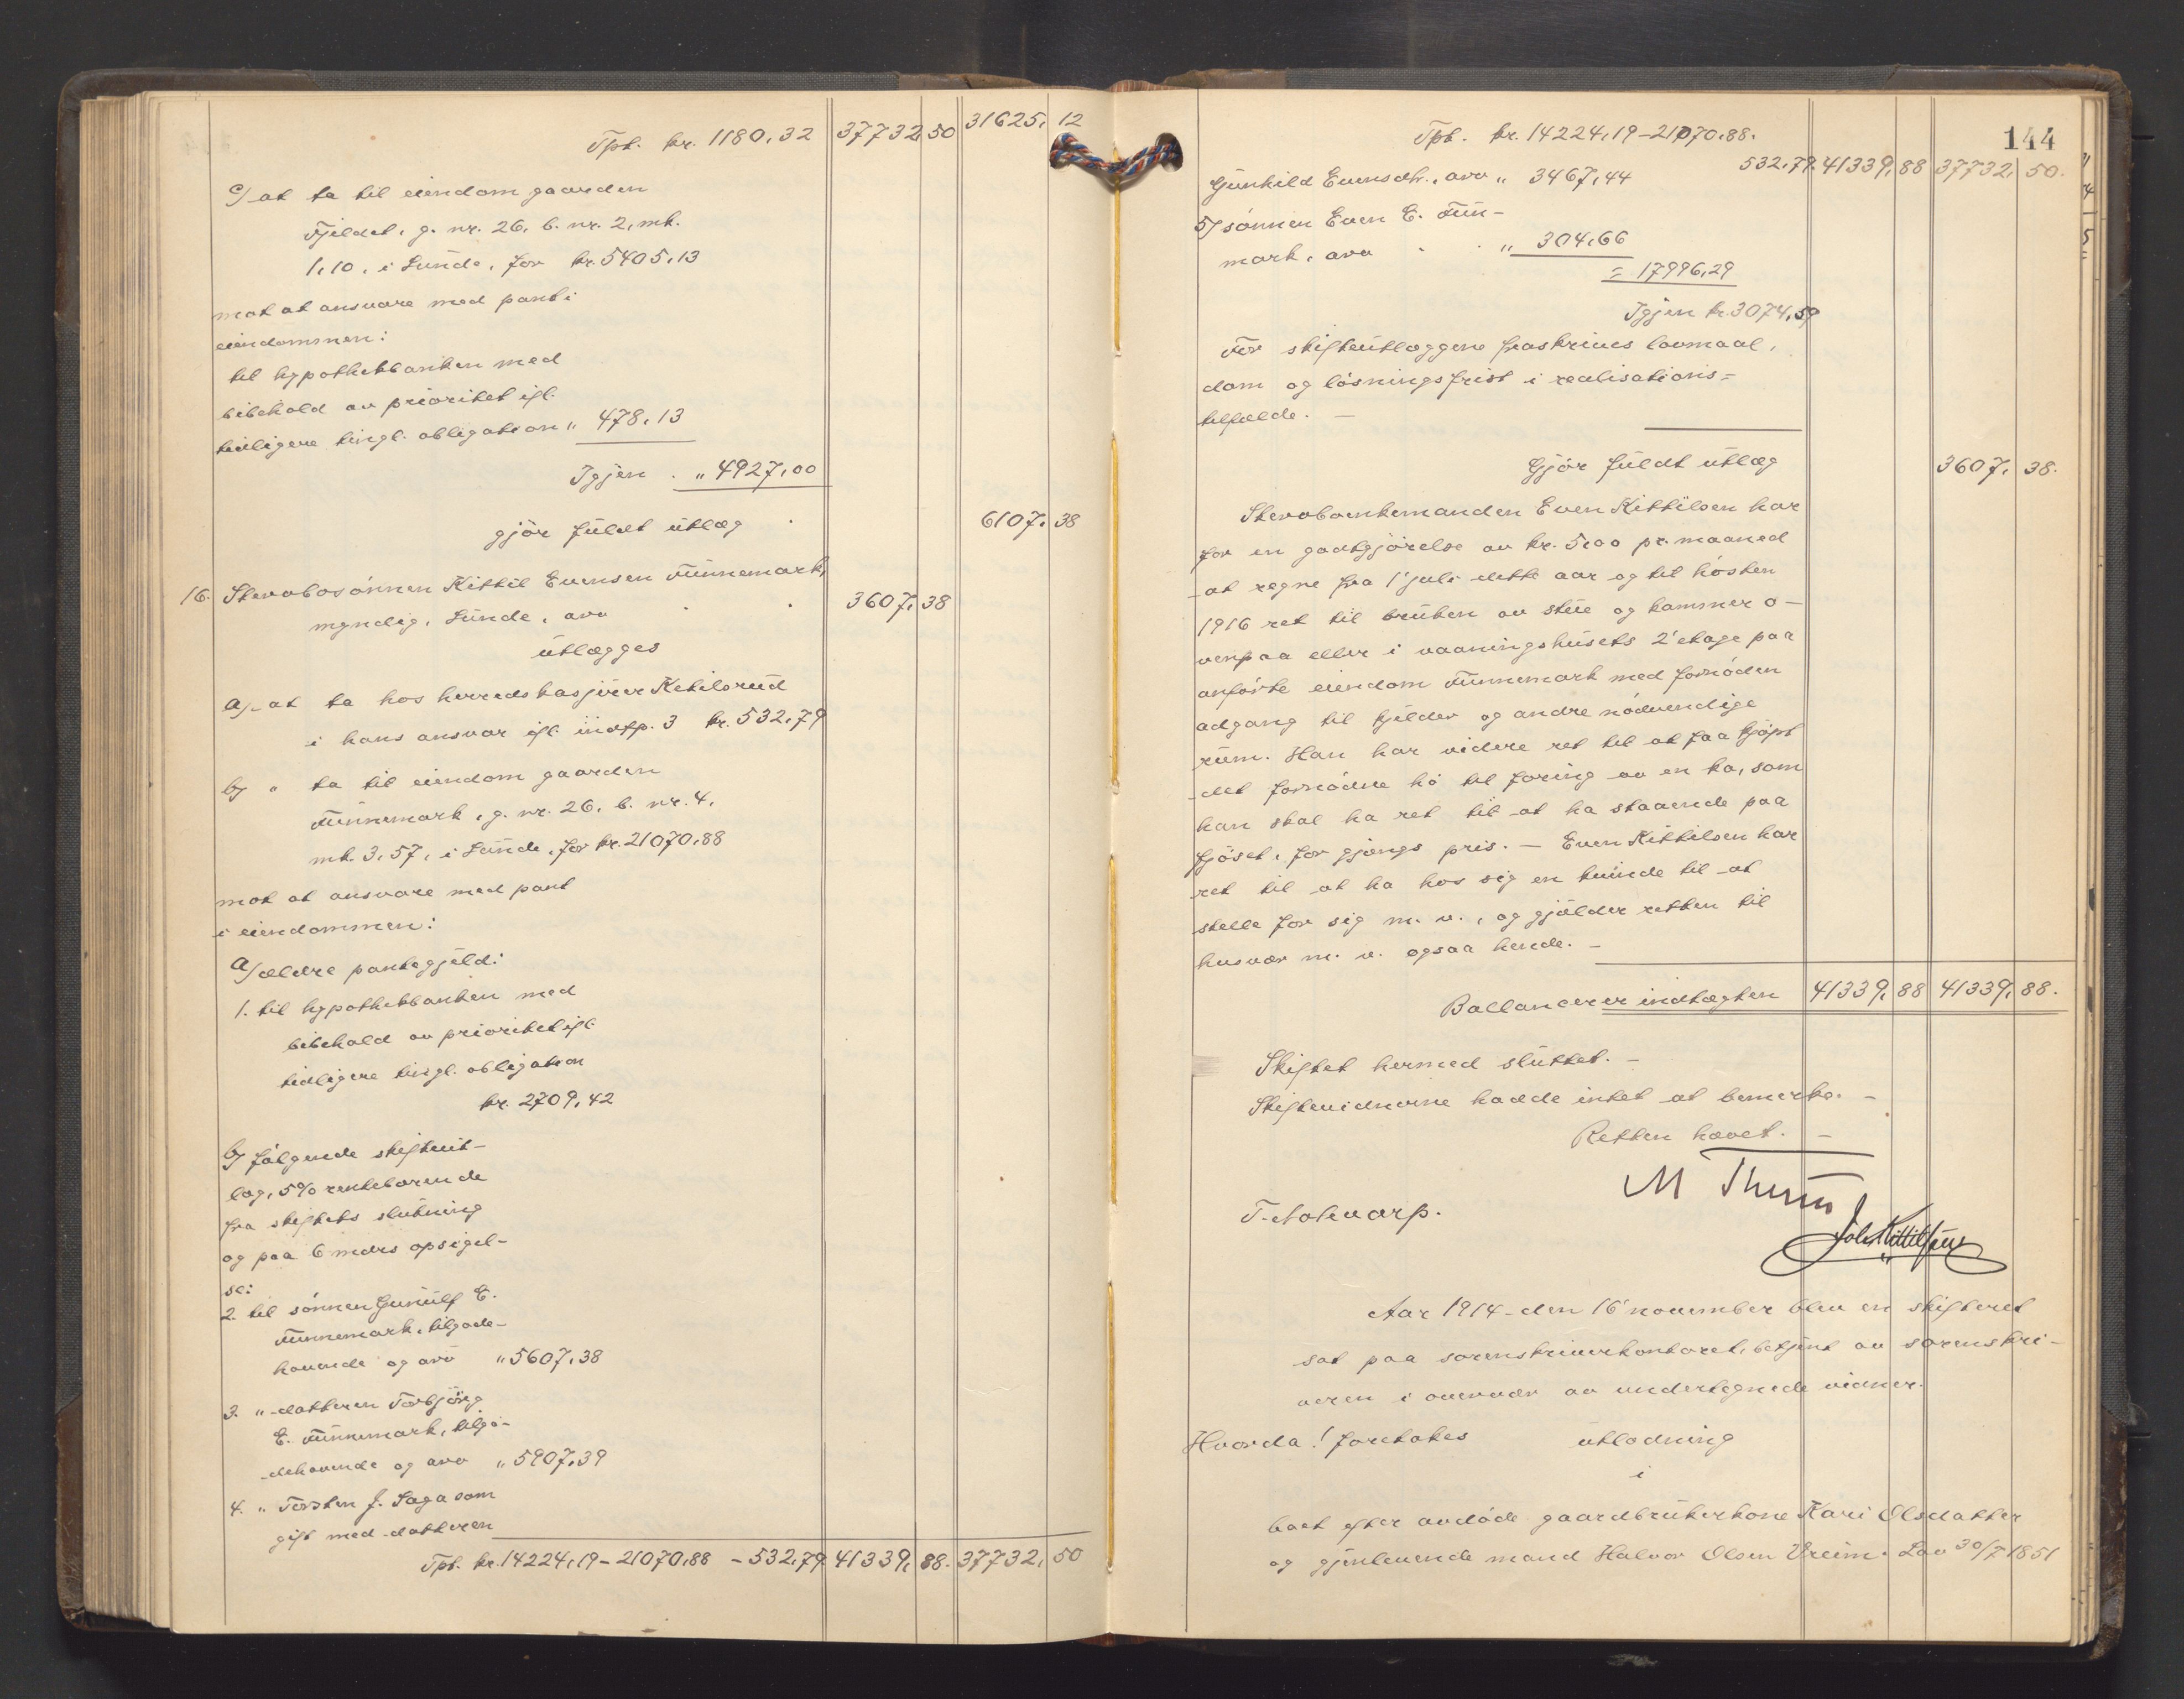 Tpt. kr. 1180,32 37732,50 31625,12
c/ at ta til eiendom gaarden
Fjeldet, g. nr. 26, b. nr. 2, mk.
1,10, i Lunde, for kr. 5405,13
mot at ansvare med pant i
eiendommen:
til hypothekbanken med
bibehold av prioritet ifl.
tidligere tingl. obligation " 478,13
Igjen . " 4927,00
gjör fuldt utlæg . 6107,38
16. Stervbosönnen Kittil Evensen Tvinnemark,
myndig, Lunde, arv . . 3607,38
utlægges
a/ at ta hos herredskasjerer Ketilsrud
i hans ansvar ifl. indtp. 3 kr. 532,79
b/ " ta til eiendom gaarden
Tvinnemark, g. nr. 26, b. nr. 4,
mk. 3,57, i Lunde, for kr. 21070,88
mot at ansvare med pant
i eiendommen:
a/ ældre pantegjeld:
1. til hypothekbanken med
bibehold av prioritet ifl.
tidligere tingl. obligation
kr. 2709,42
b/ følgende skifteut-
læg, 5% rentebærende
fra skiftets slutning
og paa 6 mdrs opsigel-
se:
2. til sönnen Gunulf E.
Tvinnemark, tilgode-
havende og arv " 5607,38
3. " datteren Torbjörg
E. Tvinnemark, tilgo-
dehavende og arv " 5907,39
4. " Torsten J. Saga som
gift med datteren
Tpt. kr. 14224,19 – 21070,88 – 532,79 41339,88. 37732,50
144
Tpt. kr. 14224,19 – 21070,88.
532,79. 41339,88 37732,50.
Gunhild Evensdtr., arv " 3467,44
5/ sönnen Even E. Tvin-
mark, arv . . " 304,66
= 17996,29
Igjen kr. 3074,59
For skifteutlæggene fraskrives lovmaal,
dom og lösningsfrist i realisations-
tilfælde. –
Gjör fuldt utlæg 3607,38.
Stervboenkemanden Even Kittilsen har
for en godtgjörelse av kr. 5,00 pr. maaned
at regne fra 1' juli dette aar og til hösten
1916 ret til bruken av stue og kammer o-
venpaa eller i vaaningshusets 2' etage paa
anförte eiendom Tvinnemark med fornöden
adgang til kjelder og andre nödvendige
rum. Han har videre ret til at faa kjöpt
det fornödne hö til foring av en ko, som
han skal ha ret til at ha staaende paa
fjöset, for gjængs pris. – Even Kittilsen har
ret til at ha hos sig en kvinde til at
stelle for sig m. v., og gjælder retten til
husvær m. v. ogsaa hende. –
Ballancerer indtægten 41339,88 41339,88.
Skiftet hermed sluttet. –
Skiftevidnerne hadde intet at bemerke. –
Retten hævet. –
M Thurn
T. Aakvarp.
Joh. Kittilsen
Aar 1914 den 16' november blev en skifteret
sat paa sorenskriverkontoret, betjent av sorenskri-
veren i overvær av undertegnede vidner.
Hvorda! foretokes utlodning
i
boet efter avdöde gaardbrukerkone Kari Olsdatter
og gjenlevende mand Halvor Olsen Vreim. Lov 30/7 1851